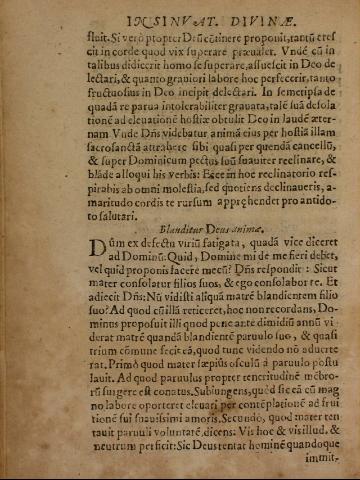 INSINVAT. DIVINÆ.
stuit. Si verò propter Deũ cõtinere proponit, tantũ cres
cit in corde quod vix superare præualet. Vndè cũ in
talibus didicerit homo se superare, assuescit in Deo de
lectari, & quanto grauiori labore hoc perfecerit, tanto
fructuosius in Deo incipit delectari. In semetipsa de
quadã re parua intolerabiliter grauata, talẽ suã desola
tionẽ ad eleuationẽ hostiæ obtulit Deo in laudẽ æter-
nam Vnde Dñs videbatur animã eius per hostiã illam
sacrosanctã attrahere sibi quasi per quendã cancellũ,
& super Dominicum pectus suũ suauiter reclinare, &
blãde alloqui his verbis: Ecce in hoc reclinatorio res-
pirabis ab omni molestia, sed quotiens declinaueris, a-
maritudo cordis te rursum apprehendet pro antido-
to salutari.
Blanditur Deus animæ.
Dũm ex defectu viriũ fatigata, quadã vice diceret
ad Dominũ: Quid, Domine mi de me fieri debet,
vel quid proponis facere mecũ? Dñs respondit: Sicut
mater consolatur filios suos, & ego consolabor te. Et
adiecit Dñs: Nũ vidisti aliquã matrẽ blandientem filio
suo? Ad quod cũ illa reticeret, hoc non recordans, Do-
minus proposuit illi quod pene ante dimidiũ annũ vi
derat matrẽ quandã blandientẽ paruulo suo, & quasi
trium cõmune fecit eã, quod tunc videndo nõ aduerte
rat. Primò quod mater sæpius osculũ à paruulo postu
lauit. Ad quod paruulus propter teneritudinẽ mẽbro-
rũ surgere est conatus. Subiungens, quòd sic eã cũ mag
no labore oporteret eleuari per contẽplationẽ ad frui
tionẽ sui suauissimi amoris. Secundò, quod mater ten
tauit paruuli voluntatẽ, dicens: Vis hoc & vis illud, &
neutrum perficit: Sic Deus tentat hominẽ quandoque
immit-